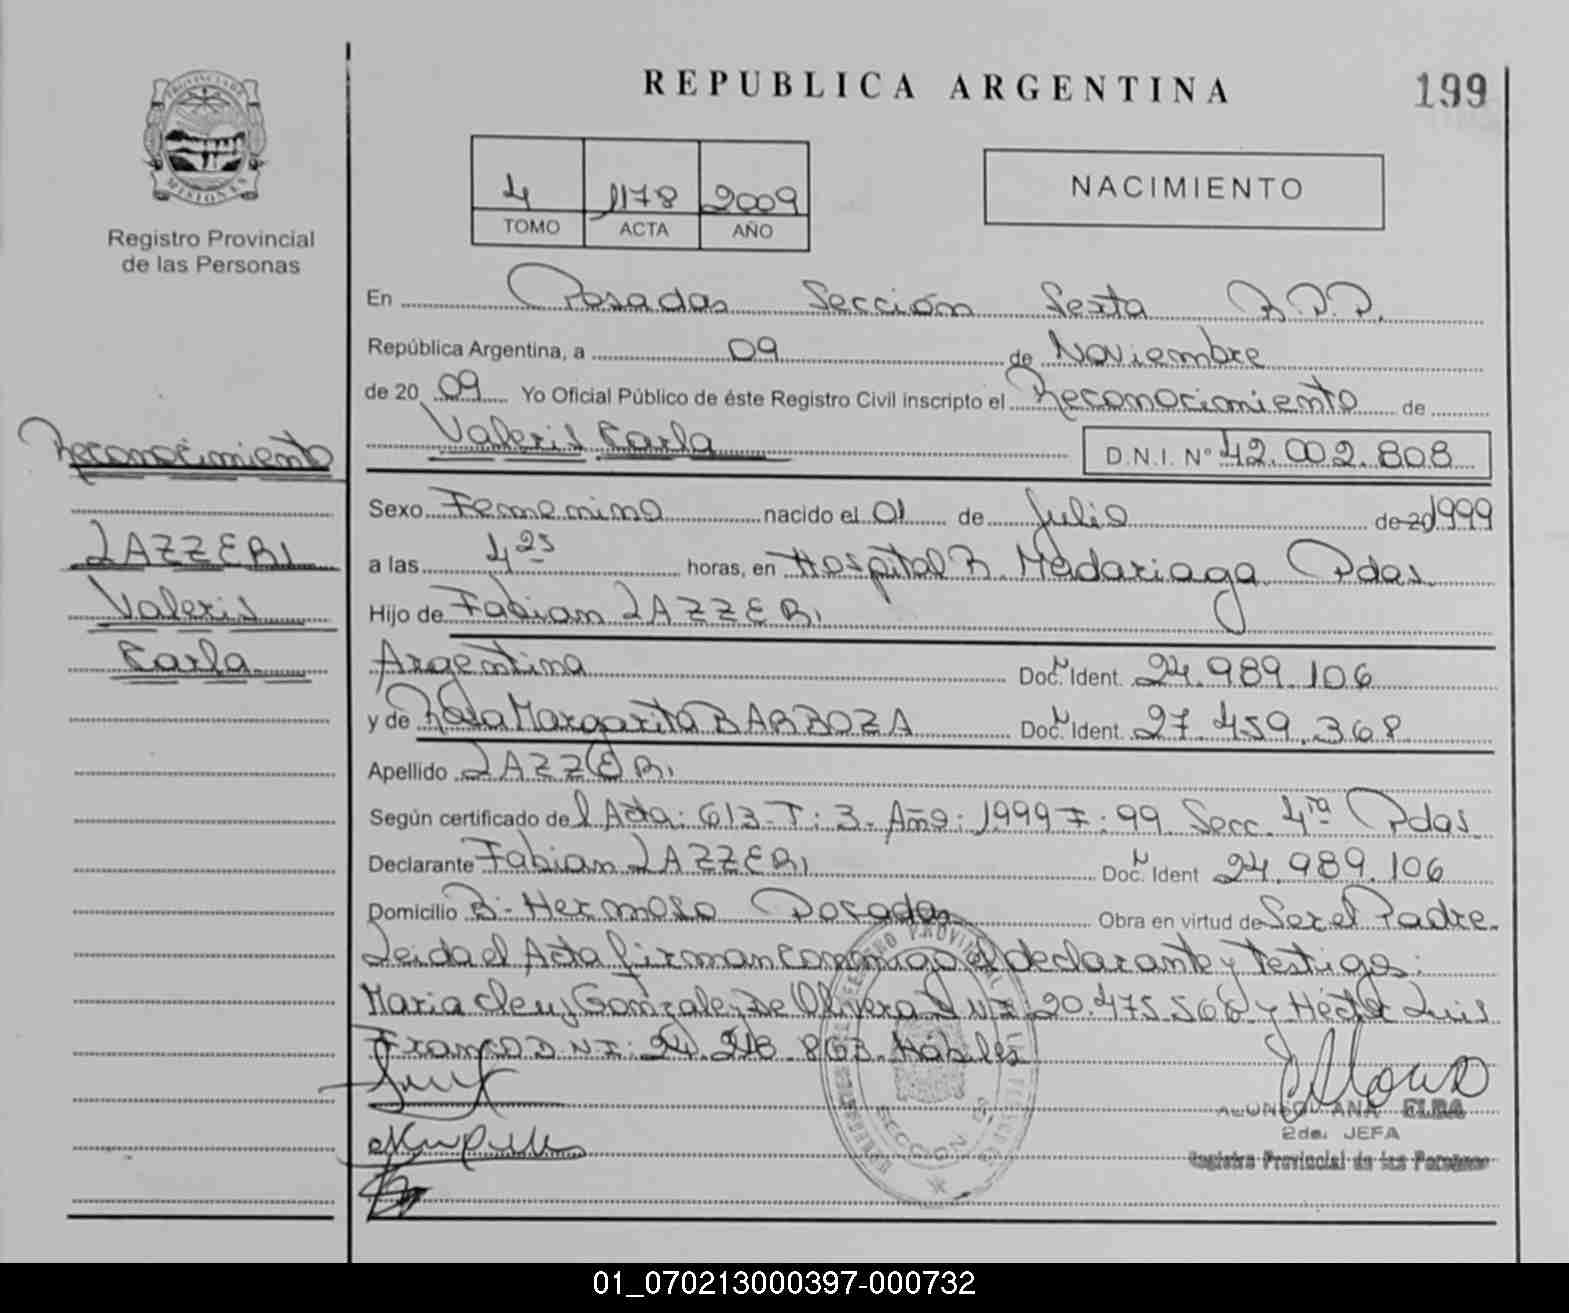 REPUBLICA ARGENTINA
199
PROVINCIA DE
MISIONES
Registro Provincial
de las Personas
4 1178 2009
TOMO ACTA AÑO
NACIMIENTO
En Posadas Sección Sexta R.P.P.
República Argentina, a 09 de Noviembre
de 20 09 Yo Oficial Público de éste Registro Civil inscripto el Reconocimiento de
Valeris Carla D.N.I. N° 42.002.808
Reconocimiento
LAZZERI
Valeris
Carla
Sexo Femenino nacido el 01 de Julio de 20 1999
a las 4 25 horas, en Hospital R. Madariaga Pdas.
Hijo de Fabian LAZZERI
Argentina Doc. Ident. 24.989.106
y de Rosa Margarita BARBOZA Doc. Ident. 27.459.368
Apellido LAZZERI
Según certificado de l Acta: 613-T: 3-Año: 1999 F: 99 Secc. 4ta Pdas.
Declarante Fabian LAZZERI Doc. Ident 24.989.106
Domicilio B: Hermoso Posadas Obra en virtud de Ser el Padre.
Leida el Acta firman conmigo el declarante y Testigos:
Maria Cleuz Gonzalez De Olivera D.N.I: 20.475.566 y Héctor Luis
Franco D.N.I: 24. 863. Hábiles
SECCION
ANA ELBA
2da. JEFA
Registro Provincial de las Personas
01_070213000397-000732